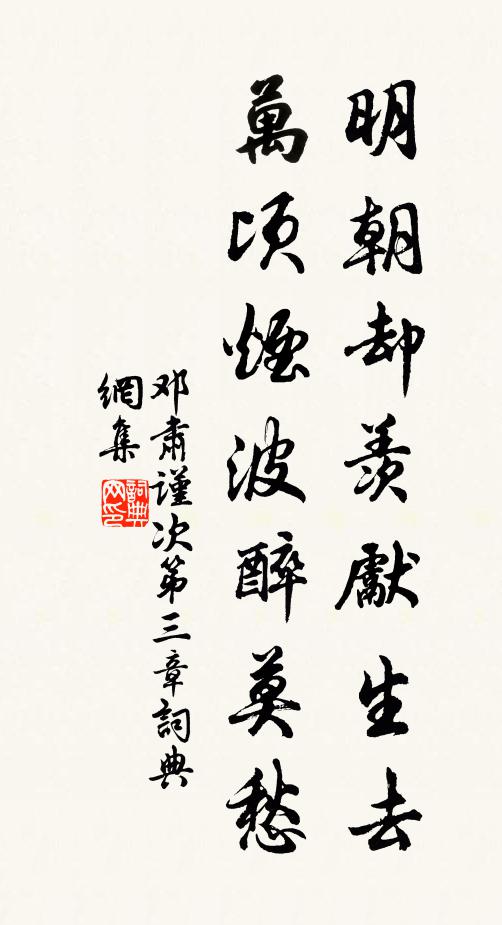 明朝却羨獻生去
萬頃煙波醉莫愁
邓肅謹次第三章詞典
網集
詞典網印